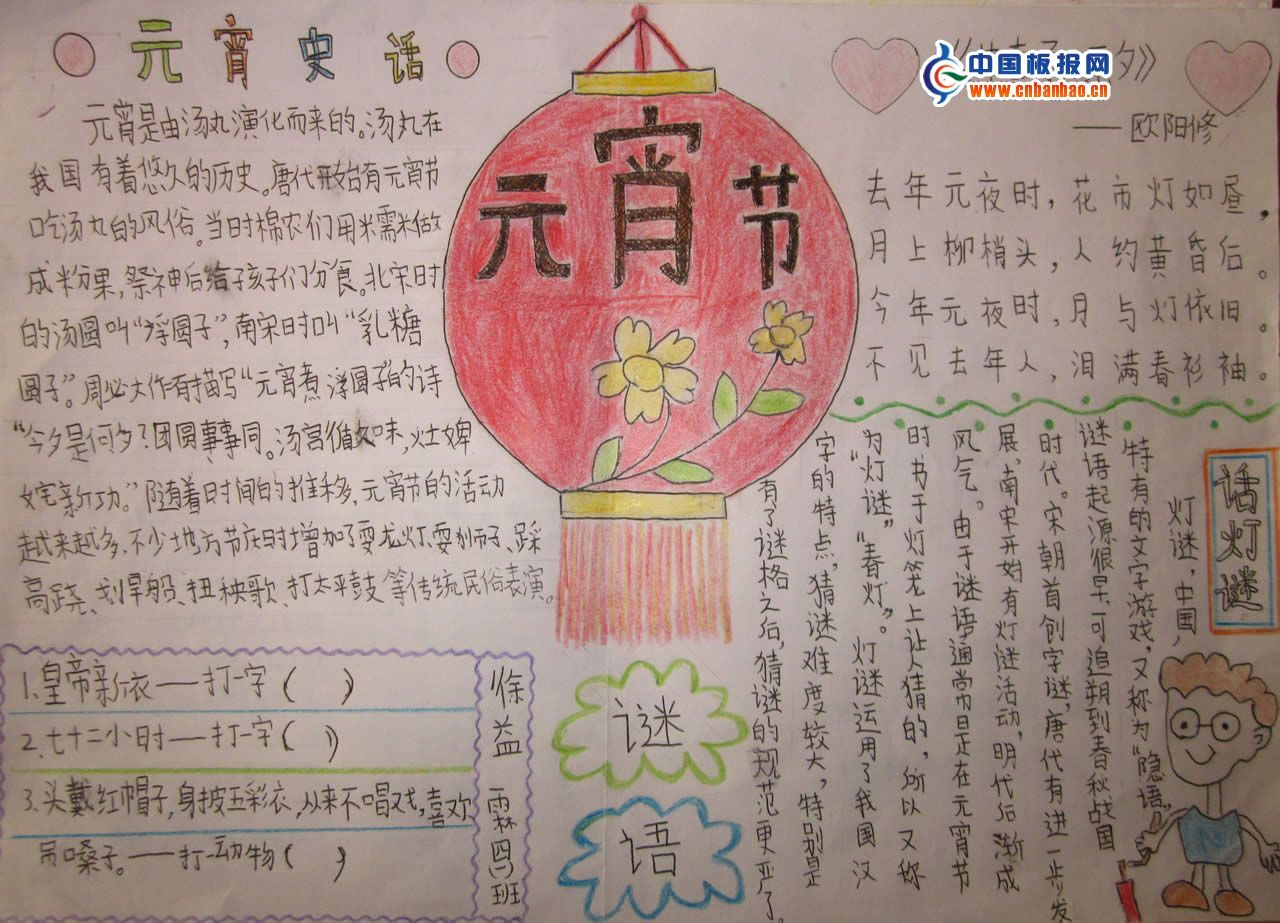 元宵史话
元宵是由汤丸演化而来的。汤丸在
我国有着悠久的历史。唐代开始有元宵节
吃汤丸的风俗。当时棉农们用米需米做
成粉果,祭神后给孩子们分食。北宋时
的汤圆叫“浮圆子”,南宋时叫“乳糖
圆子”。周必大作有描写“元宵煮浮圆子”的诗
“今夕是何夕?团圆事事同。汤宫循 味,灶婢
姹新功。”随着时间的推移,元宵节的活动
越来越多,不少地方节庆时增加了耍龙灯、耍狮子、踩
高跷、划旱船、扭秧歌、打太平鼓等传统民俗表演。
元宵节
中国板报网
www.cnbanbao.cn
夕》
——欧阳修
去年元夜时,花市灯如昼,
月上柳梢头,人约黄昏后。
今年元夜时,月与灯依旧。
不见去年人,泪满春衫袖。
话灯谜
灯谜,中国,
特有的文字游戏,又称为“隐语”
谜语起源很早,可追朔到春秋战国
时代。宋朝首创字谜,唐代有进一步发
展,南宋开始有灯谜活动,明代后渐成
风气。由于谜语通常是在元宵节
时书于灯笼上让人猜的,所以又称
为“灯谜”“春灯”。灯谜运用了我国汉
字的特点,猜谜难度较大,特别是
有了谜格之后,猜谜的规范更严了。
1.皇帝新衣——打一字( )
2.七十二小时——打一字( )
3.头戴红帽子,身披五彩衣,从来不唱戏,喜欢
吊嗓子。——打一动物( )
徐益霖 四(1)班
谜
语